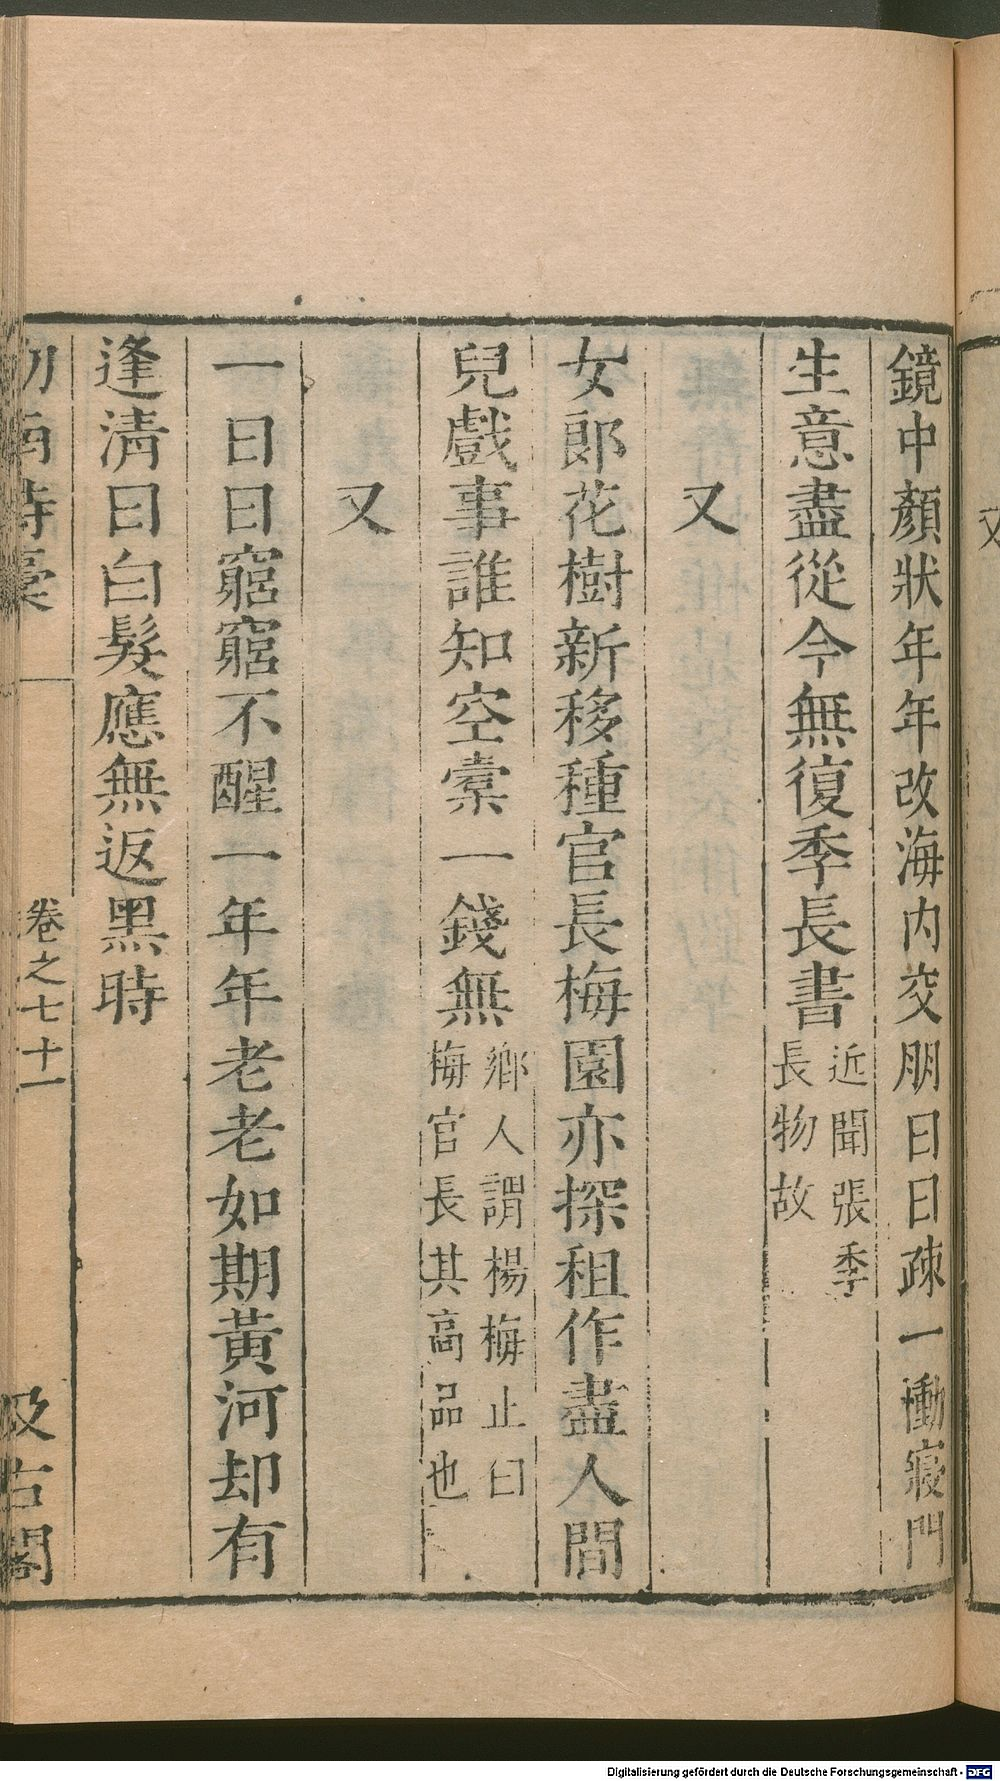 鏡中顏狀年年改海内交朋日日疎一慟寢門
生意盡從今無復季長書近聞張季
長物故
又
女郎花樹新移種官長梅園亦探租作盡人間
兒戲事誰知空橐一錢無鄉人謂楊梅止曰
梅官長其高品也
又
一日日窮窮不醒一年年老老如期黃河却有
逢清日白髮應無返黑時
劒南詩稾
卷之七十一
汲古閣
Digitalisierung gefördert durch die Deutsche Forschungsgemeinschaft - DFG